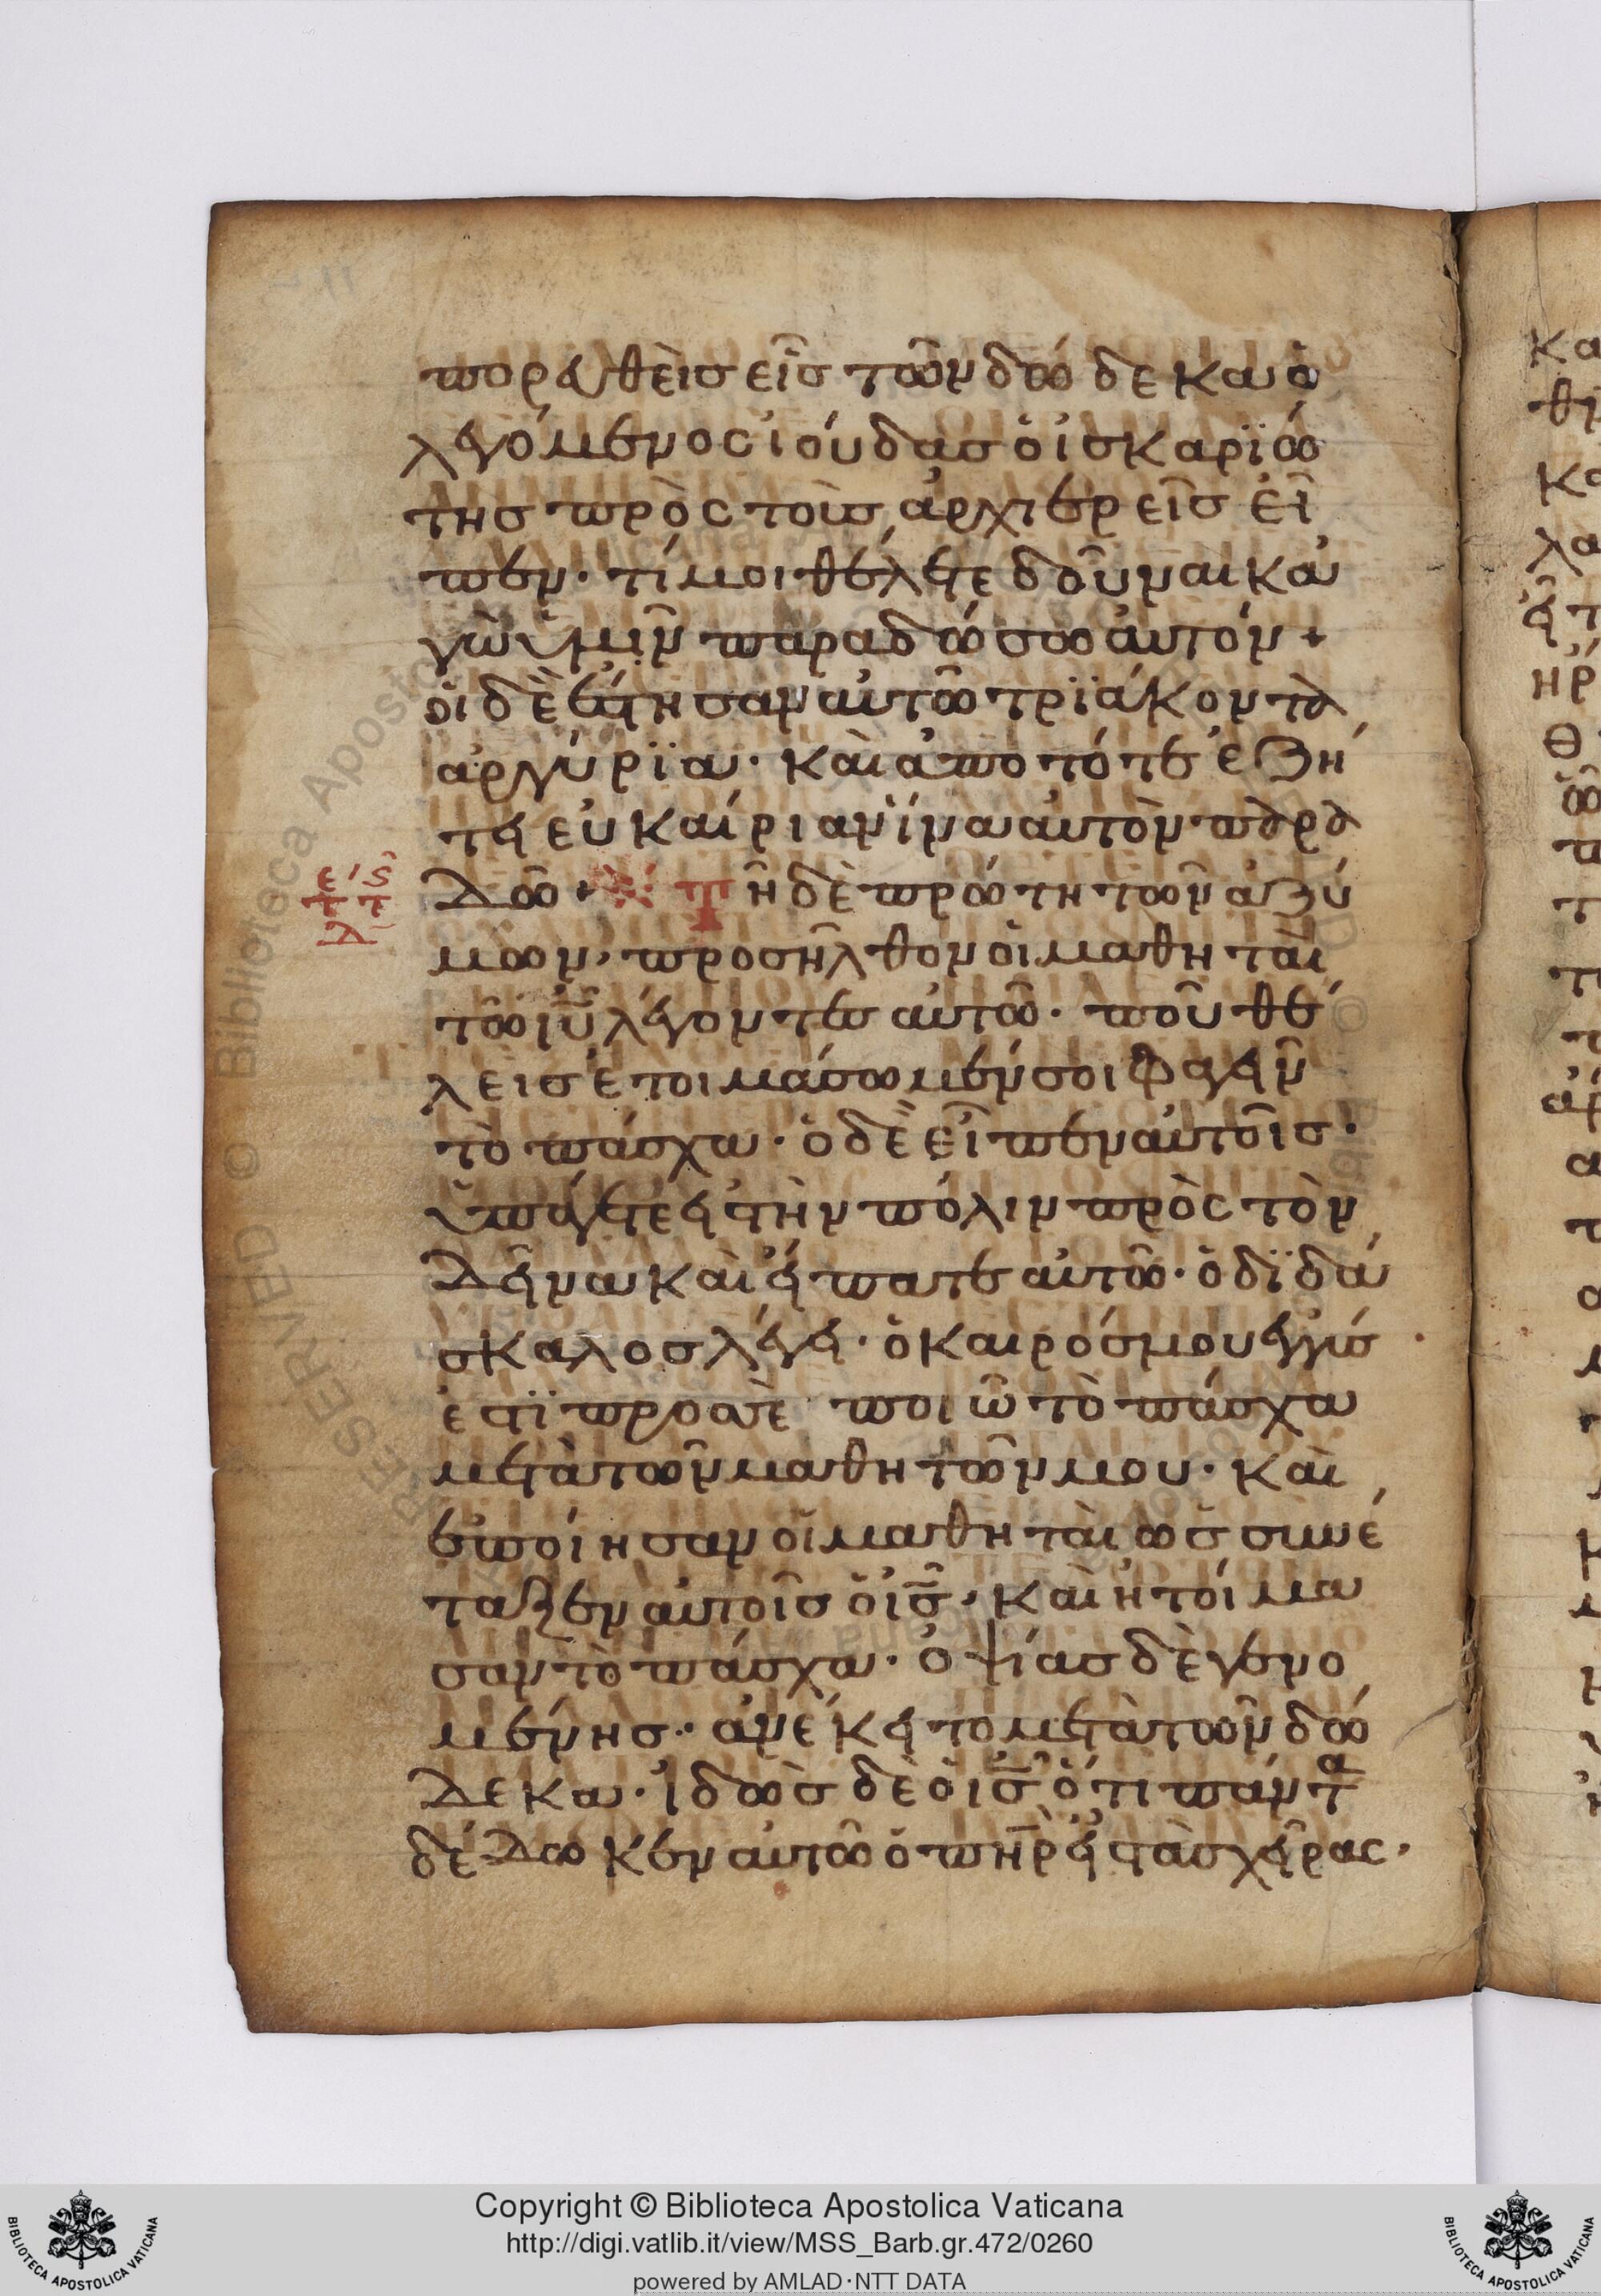 πορευθεὶς εἷς τῶν δώδεκα ὁ
λεγόμενος ἰούδας ὁ ἰσκαριώ
της πρὸς τοὺς ἀρχιερεῖς εἶ
πεν· τί μοι θέλετε δοῦναι κα
γὼ ὑμῖν παραδώσω αὐτόν +
οἱ δὲ ἔστησαν αὐτῶ τριάκοντα
ἀργύρια· καὶ ἀπο τότε ἐζή
τει εὐκαίριαν ἵνα αὐτὸν παρα
δῶ + Τῆ δὲ πρώτη τῶν ἀζύ
μων, προσῆλθον οἱ μαθηταὶ
τῶ ιῦ λέγοντες αὐτῶ· ποῦ θέ
λεις ἑτοιμάσωμέν σοι φαγεῖν
τὸ πάσχα· ὁ δὲ εἶπεν αὐτοῖς·
ὑπάγετε εἰς τὴν πόλιν πρὸς τὸν
δεῖνα καὶ εἴπατε αὐτῶ· ὁ διδά
σκαλος λέγει· ὁ καιρός μου ἐγγύς
ἐστι προς σὲ ποιῶ τὸ πάσχα
μετὰ τῶν μαθητῶν μου· καὶ
ἐποίησαν οἱ μαθηταὶ ὡς συνέ
ταξεν αὐτοῖς ὁ ις· καὶ ἡτοίμα
σαν τὸ πάσχα· ὀψίας δὲ γενο
μένης· ἀνέκειτο μετὰ τῶν δώ
δεκα· ἰδὼς δὲ ὁ ις ὅτι πάντα
δέδωκεν αὐτῶ ὁ πηρ εἰς τὰς χεῖρας·
Copyright © Biblioteca Apostolica Vaticana
http://digi.vatlib.it/view/MSS_Barb.gr.472/0260
powered by AMLAD·NTT DATA
BIBLIOTECA APOSTOLICA VATICANA
BIBLIOTECA APOSTOLICA VATICANA